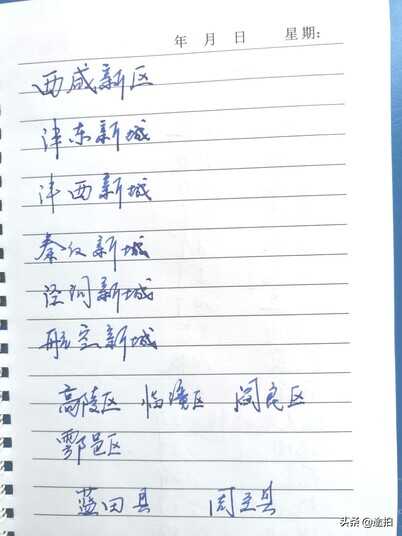 年 月 日 星期:
西咸新区
沣东新城
沣西新城
秦汉新城
泾河新城
航空新城
高陵区 临潼区 阎良区
鄠邑区
蓝田县 周至县
头条